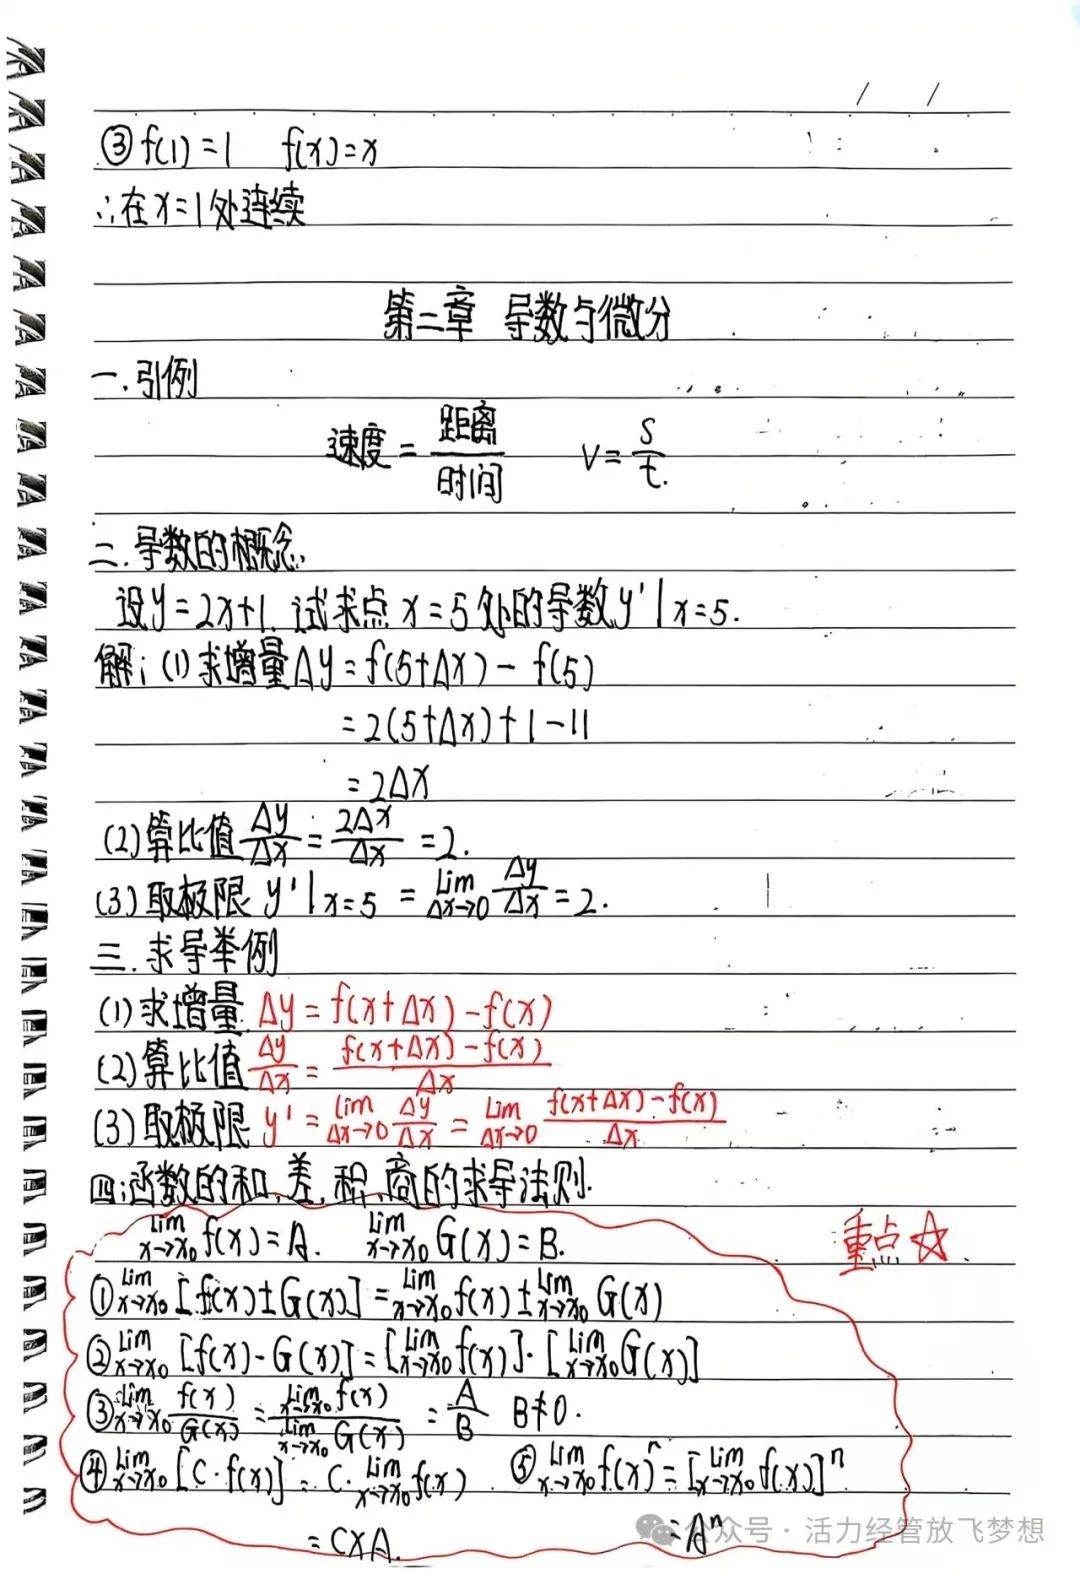 ③ f(1)=1 f(x)=x
∴在x=1处连续
第二章 导数与微分
一.引例
速度=距离/时间 v=s/t.
二.导数的概念.
设y=2x+1.试求点x=5处的导数y'|x=5.
解:(1)求增量Δy=f(5+Δx)-f(5)
=2(5+Δx)+1-11
=2Δx
(2)算比值Δy/Δx=2Δx/Δx=2.
(3)取极限 y'|x=5=lim Δx→0 Δy/Δx=2.
三.求导举例
(1)求增量 Δy=f(x+Δx)-f(x)
(2)算比值Δy/Δx=f(x+Δx)-f(x)/Δx
(3)取极限 y'=lim Δx→0 Δy/Δx=lim Δx→0 f(x+Δx)-f(x)/Δx
四:函数的和、差、积、商的求导法则.
lim x→x0 f(x)=A. lim x→x0 G(x)=B.
重点☆
①lim x→x0 [f(x)±G(x)]=lim x→x0 f(x)±lim x→x0 G(x)
②lim x→x0 [f(x)-G(x)]=[lim x→x0 f(x)]·[lim x→x0 G(x)]
③lim x→x0 f(x)/G(x)=lim x→x0 f(x)/lim x→x0 G(x)=A/B B≠0.
④lim x→x0 [C·f(x)]=C·lim x→x0 f(x) ⑤lim x→x0 f(x)^n=[lim x→x0 f(x)]^n
=C×A. =A^n
公众号·活力经管放飞梦想